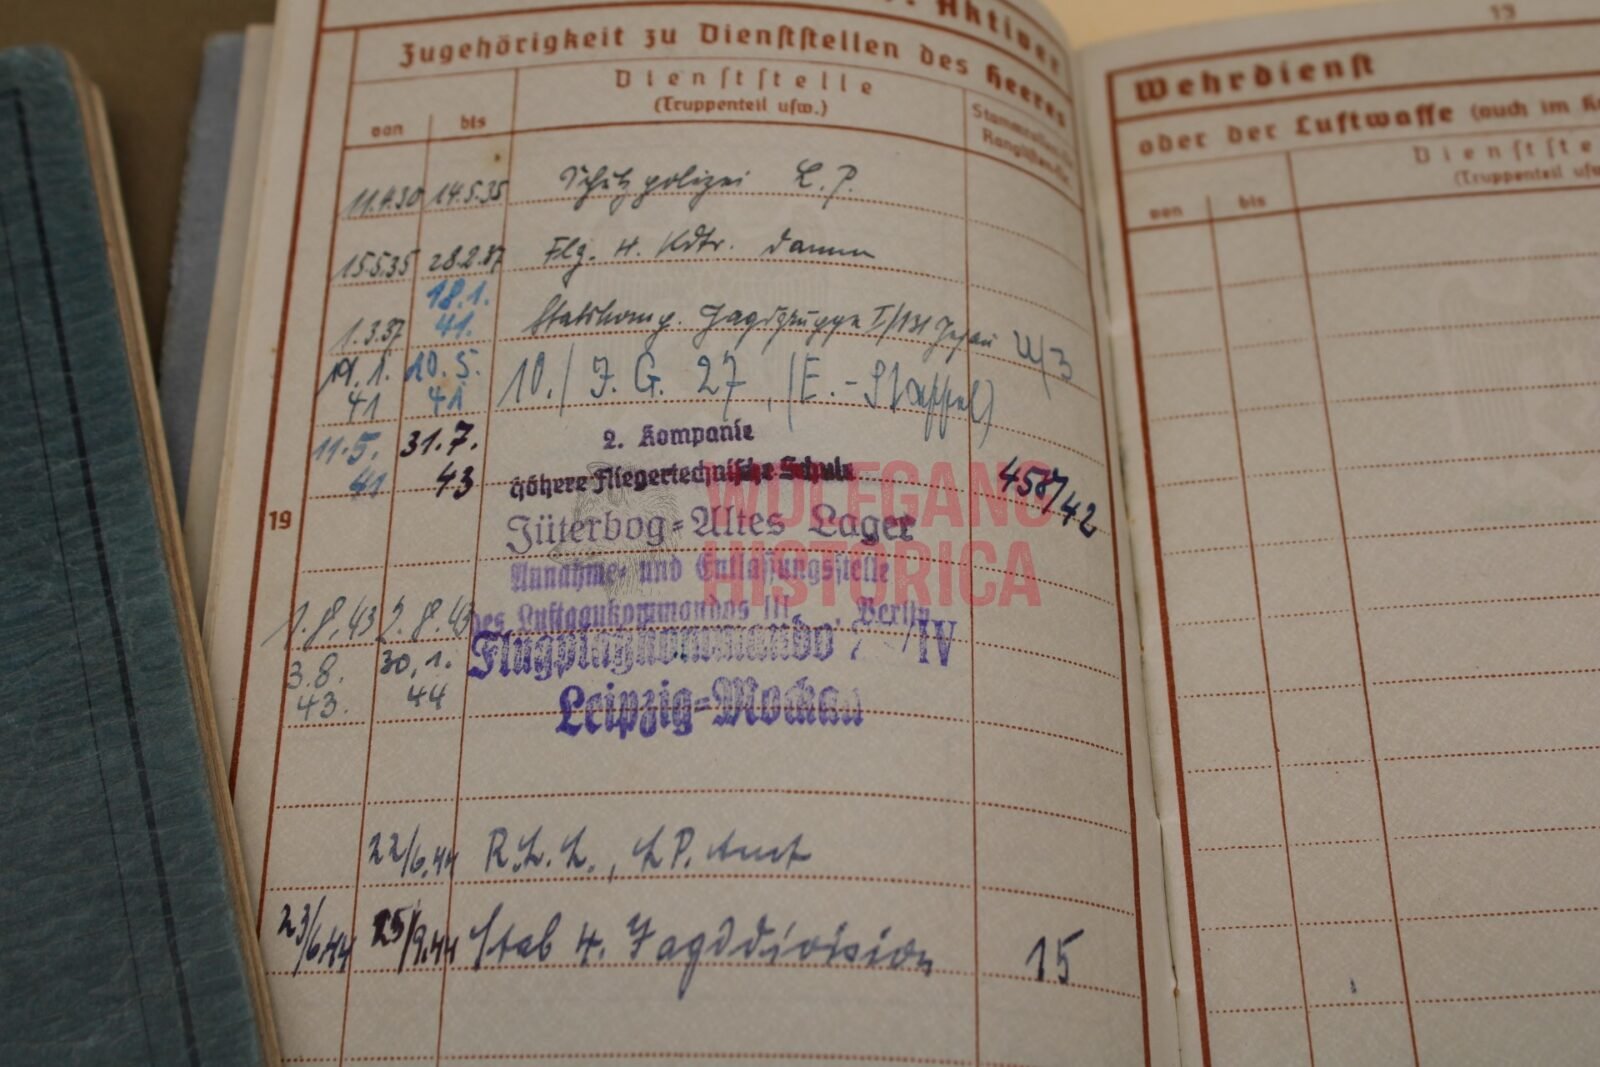 . Aktiver
Zugehörigkeit zu Dienststellen des Heeres
von bis
Dienststelle
(Truppenteil usw.)
Stammrollen-Nr.
Ranglisten-Nr.
11.4.30 14.5.35 Schutzpolizei L.P.
15.5.35 28.2.37 Flg. H. Kdtr. Damm
1.3.37 18.1.41. Stabskomp. Jagdgruppe I/131 Jesau
19.1.41 10.5.41 10./J.G. 27, (E.-Staffel)
11.5.41 31.7.43 2. Kompanie
Höhere Fliegertechnische Schule 458/42
Jüterbog-Altes Lager
19
Annahme- und Entlassungsstelle
1.8.43 2.8.43 des Luftgaukommandos III, Berlin
3.8.43. 30.1.44 Flugplatzkommando /IV
Leipzig-Mockau
22/6.44 R.L.L., LP. Amt
23/6.44 25/9.44 Stab 4. Jagddivision 15
13
Wehrdienst
oder der Luftwaffe (auch im
Dienstste
(Truppenteil usw
von bis
WOLFGANG
HISTORICA